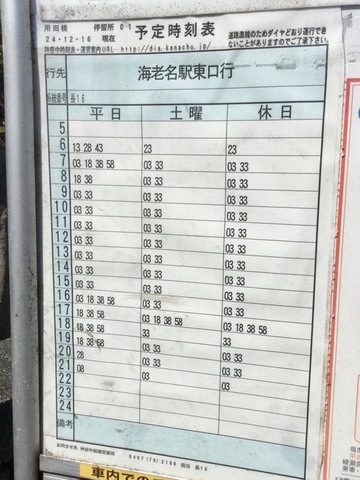 用田橋 停留所 01
24・12・16 現在
予定時刻表
道路混雑のためダイヤどおり運行できないことがありますのでご了承下さい。
神奈中時刻表・運賃案内URL http://dia.kanachu.jp/
行先 海老名駅東口行
系統番号 長16
平日 土曜 休日
5
6 13 28 43 23 23
7 03 18 38 58 03 33 03 33
8 18 38 03 33 03 33
9 03 33 03 33 03 33
10 03 33 03 33 03 33
11 03 33 03 33 03 33
12 03 33 03 33 03 33
13 03 33 03 33 03 33
14 03 33 03 33 03 33
15 03 33 03 33 03 33
16 03 18 38 58 03 33 03 33
17 18 38 58 03 18 38 58 03 18 38 58
18 18 38 58 33 33
19 18 38 58 03 33 03 33
20 28 03 33 03 33
21 08 03 03
22
23
24
備考
0467(78)2188 担当 長16
車内での